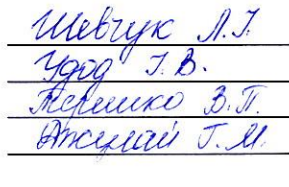 Шевчук Л.Г.
Удод Г.В.
Терешко В.П.
Джулай Г.М.